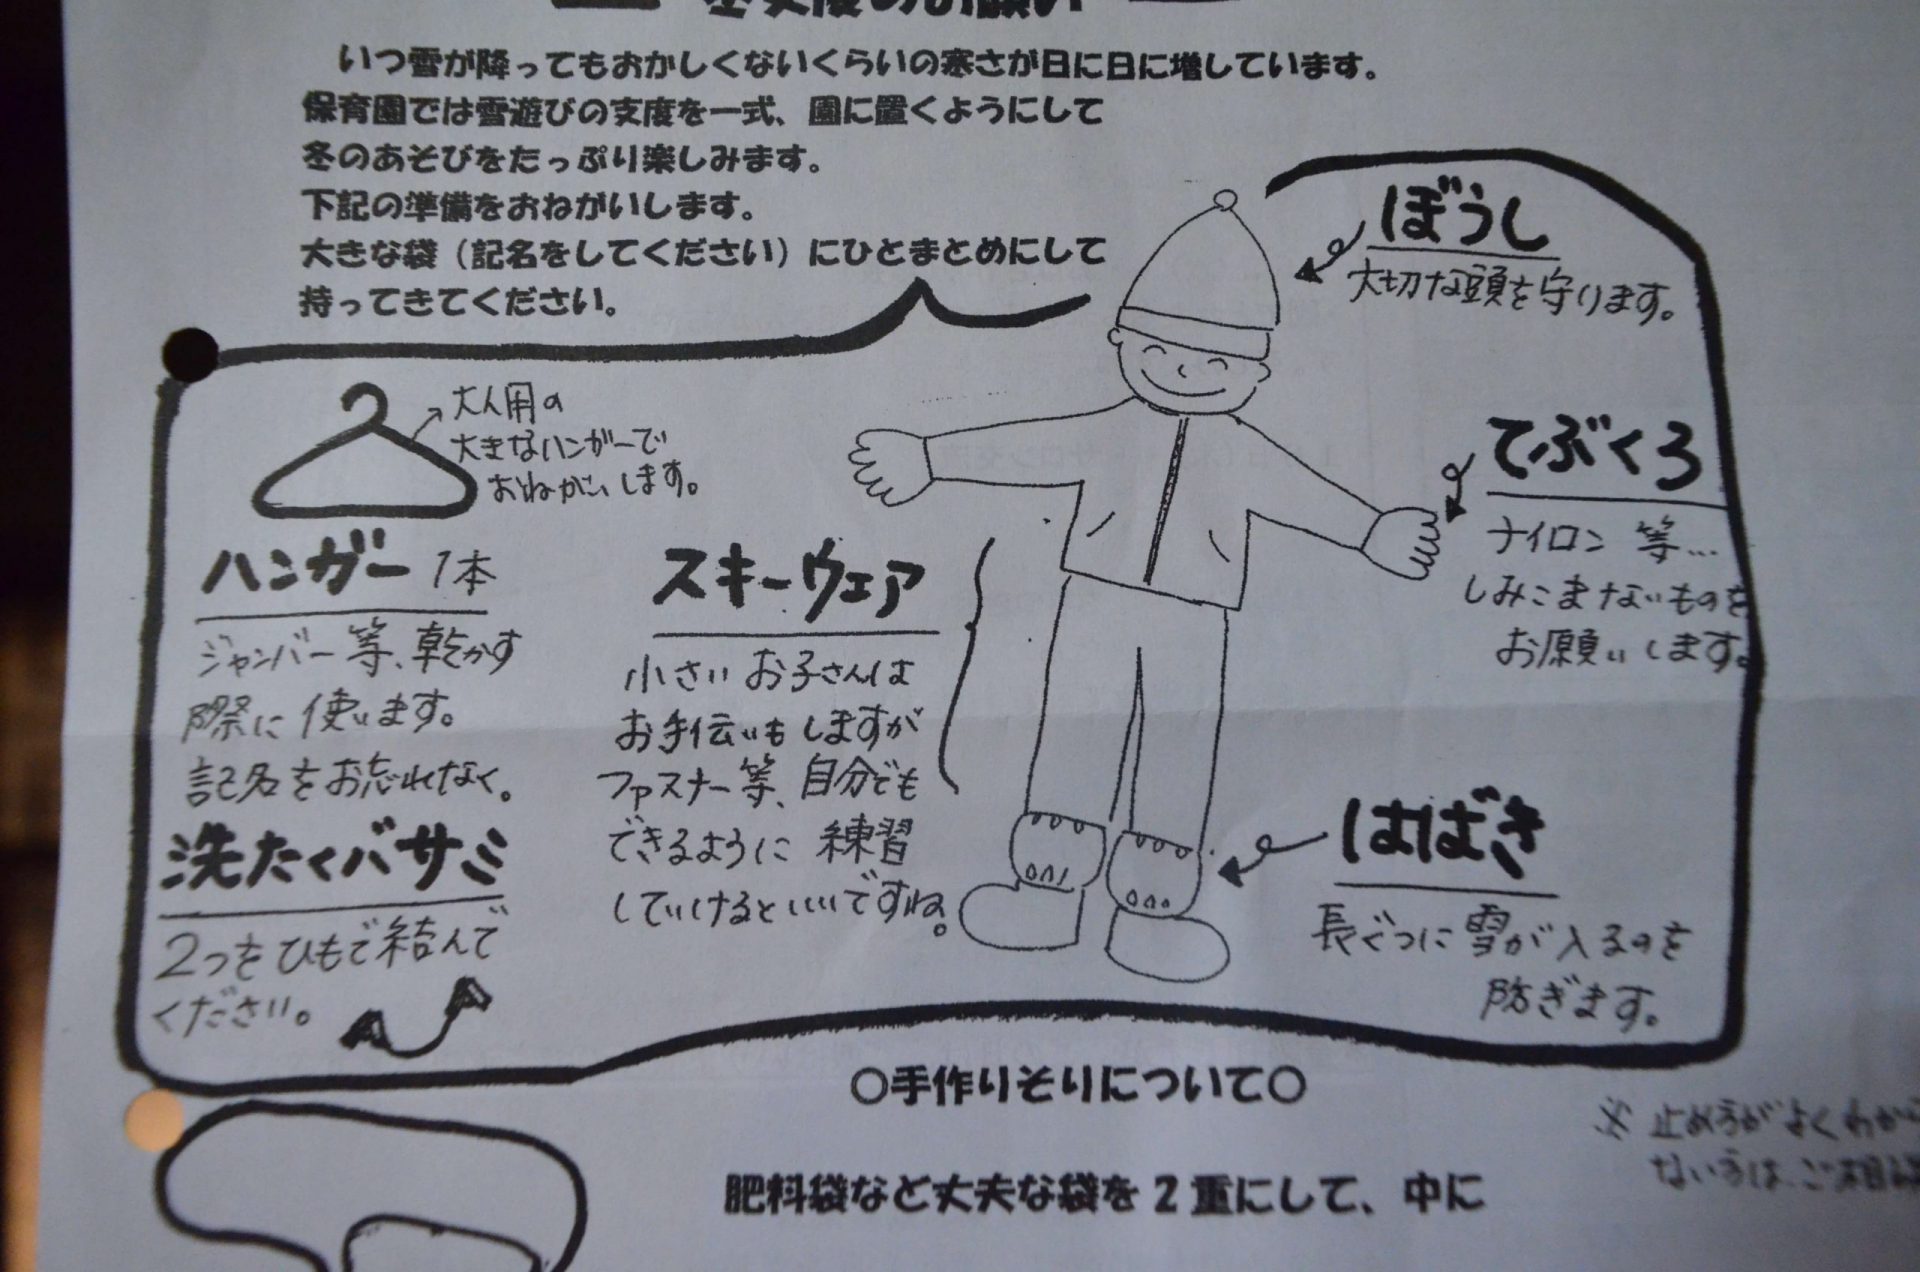 冬支度のお願い
いつ雪が降ってもおかしくないくらいの寒さが日に日に増しています。
保育園では雪遊びの支度を一式、園に置くようにして
冬のあそびをたっぷり楽しみます。
下記の準備をおねがいします。
大きな袋（記名をしてください）にひとまとめにして
持ってきてください。
ぼうし
大切な頭を守ります。
大人用の
大きなハンガーで
おねがいします。
ハンガー 1本
ジャンバー等、乾かす
際に使います。
記名をお忘れなく。
洗たくバサミ
2つをひもで結んで
ください。
スキーウェア
小さいお子さんは
お手伝いもしますが
ファスナー等、自分でも
できるように練習
していけるといいですね。
てぶくろ
ナイロン等…
しみこまないものを
お願いします。
はばき
長ぐつに雪が入るのを
防ぎます。
○手作りそりについて○
※止め方がよくわから
ない方は、ご相談
肥料袋など丈夫な袋を2重にして、中に